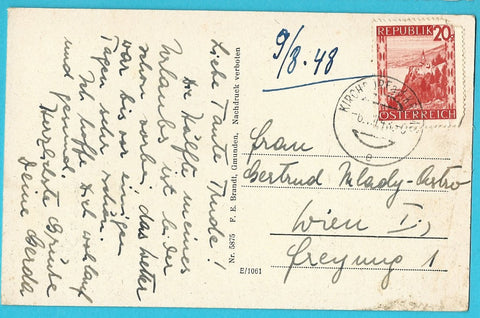 Liebe Tante Trude!
Die Hälfte meines
Urlaubes ist leider
schon vorbei, das Wetter
war bis vor einigen
Tagen sehr schön.
Ich hoffe Dich wohlauf
und gesund,
Herzlichste Grüße
Deine Gerda
Nr. 5875 F. E. Brandt, Gmunden, Nachdruck verboten
E/1061
9/8. 48
REPUBLIK 20
ÖSTERREICH
KIRCHDORF
e
Frau
Gertrud Mlady-Astro
Wien I.,
Freyung 1